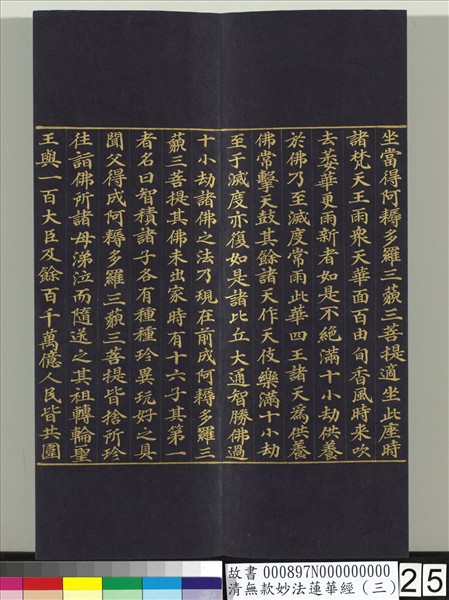 坐當得阿耨多羅三藐三菩提適坐此座時
諸梵天王雨衆天華面百由旬香風時來吹
去萎華更雨新者如是不絕滿十小劫供養
於佛乃至滅度常雨此華四王諸天為供養
佛常擊天鼓其餘諸天作天伎樂滿十小劫
至于滅度亦復如是諸比丘大通智勝佛過
十小劫諸佛之法乃現在前成阿耨多羅三
藐三菩提其佛未出家時有十六子其第一
者名曰智積諸子各有種種珍異玩好之具
聞父得成阿耨多羅三藐三菩提皆捨所珍
往詣佛所諸母涕泣而隨送之其祖轉輪聖
王與一百大臣及餘百千萬億人民皆共圍
故書 000897N000000000
清無款妙法蓮華經（三）
25